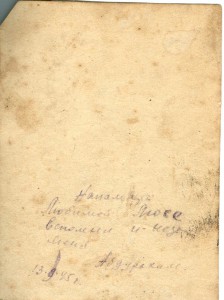 На память
Любимой Люсе
Вспомни и
меня
13-9-45 г.